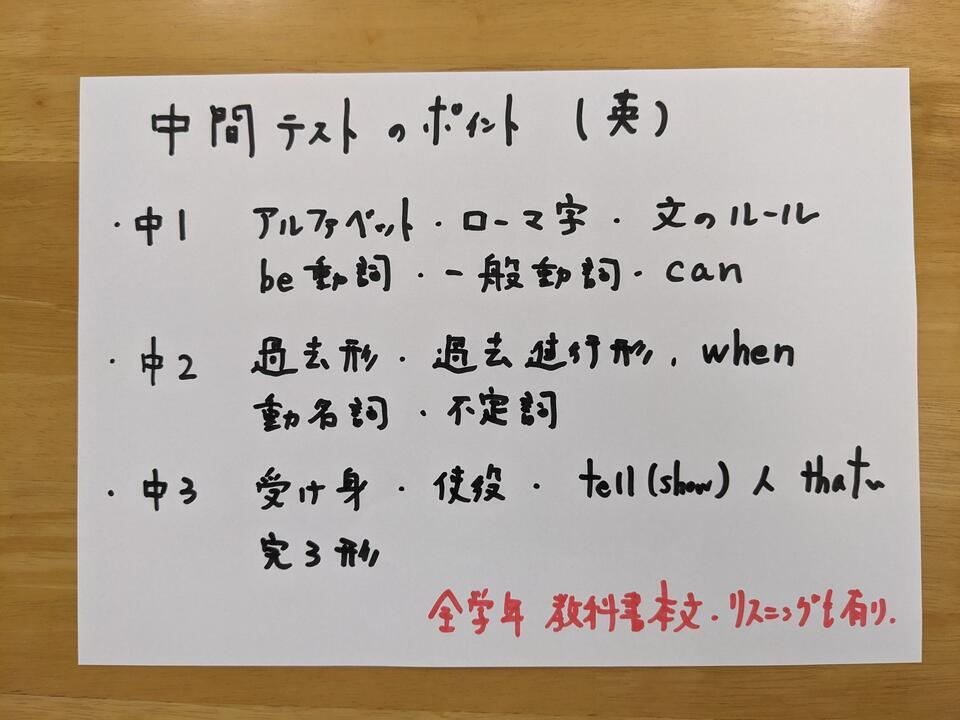 中間テストのポイント (英)
・中1 アルファベット・ローマ字・文のルール
be動詞・一般動詞・can
・中2 過去形・過去進行形, when
動名詞・不定詞
・中3 受け身・使役・tell(show) 人 that〜
完3形
全学年 教科書本文・リスニングも有り.